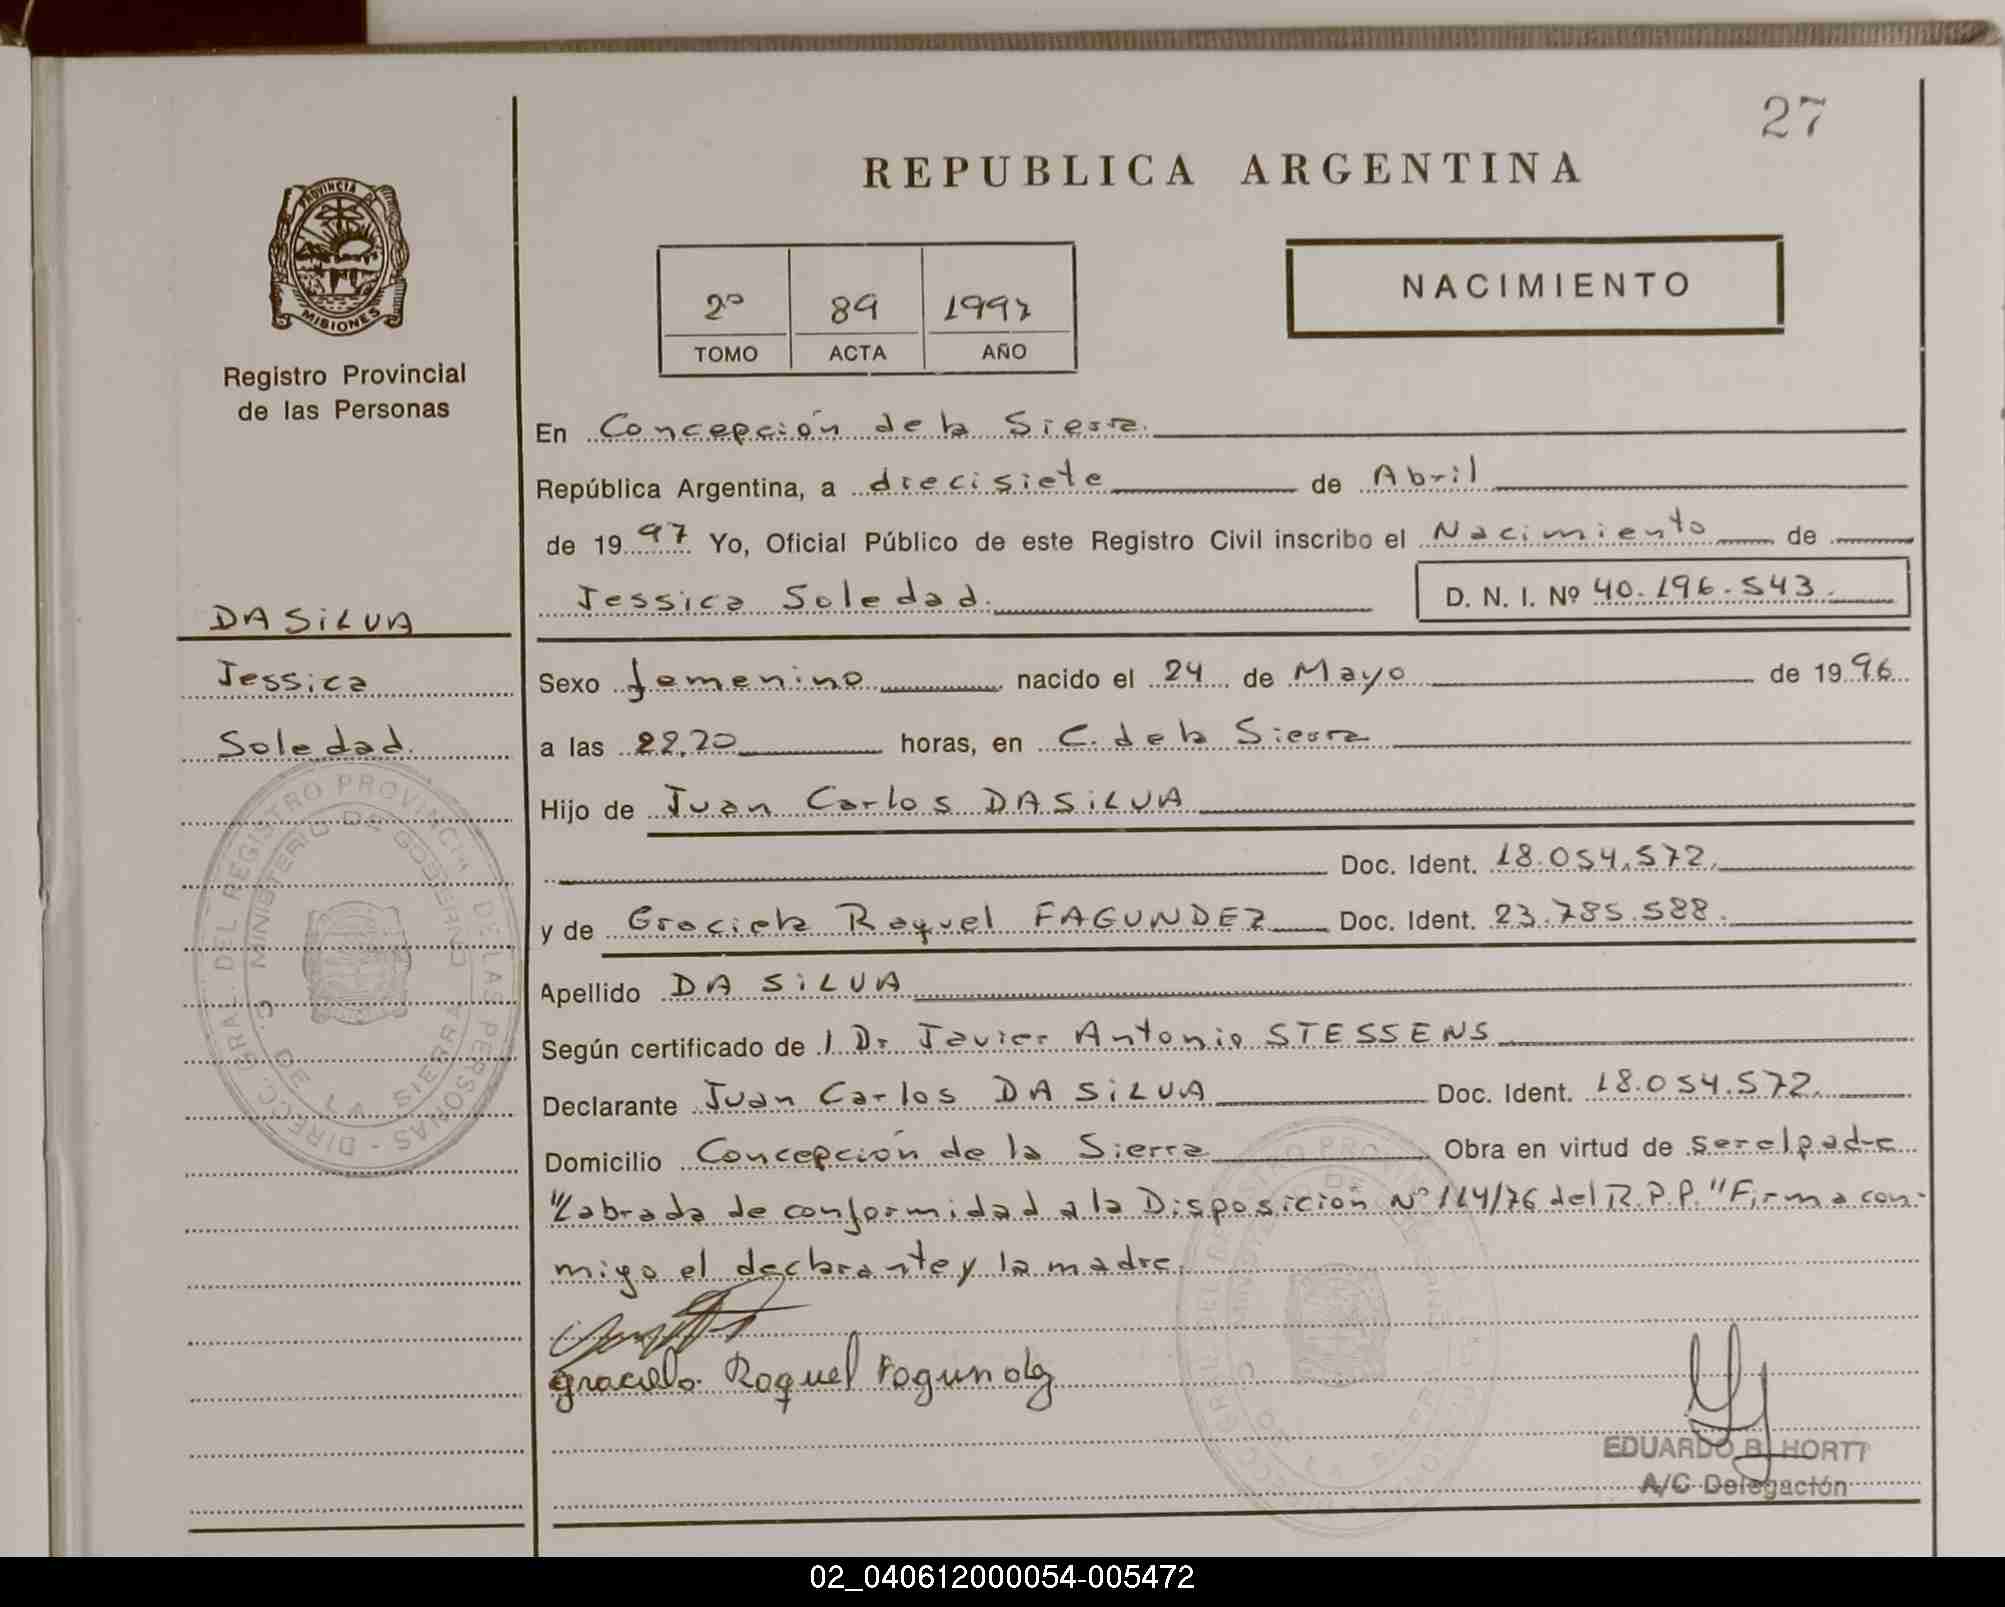 27
REPUBLICA ARGENTINA
PROVINCIA DE
MISIONES
Registro Provincial
de las Personas
2º 89 1997
TOMO ACTA AÑO
NACIMIENTO
En Concepción de la Sierra.
República Argentina, a diecisiete de Abril
de 1997 Yo, Oficial Público de este Registro Civil inscribo el Nacimiento de
Jessica Soledad. D. N. I. Nº 40.196.543.
DA SiLVA
Jessica
Soledad.
Sexo femenino nacido el 24 de Mayo de 1996
a las 22,20 horas, en C. de la Sierra
Hijo de Juan Carlos DA SiLVA
Doc. Ident. 18.054.572.
y de Graciela Raquel FAGUNDEZ Doc. Ident. 23.785.588.
Apellido DA SiLVA
Según certificado de / Dr Javier Antonio STESSENS
Declarante Juan Carlos DA SiLVA Doc. Ident. 18.054.572.
Domicilio Concepción de la Sierra Obra en virtud de ser el padre
"Labrada de conformidad a la Disposición Nº 114/76 del R.P.P." Firma con-
migo el declarante y la madre.
Graciela Raquel Fagundez
EDUARDO B. HORTT
A/C Delegación
DIRECC. GRAL. DEL REGISTRO PROVINCIAL DE LAS PERSONAS
MINISTERIO DE GOBIERNO
C. DE LA SIERRA
02_040612000054-005472